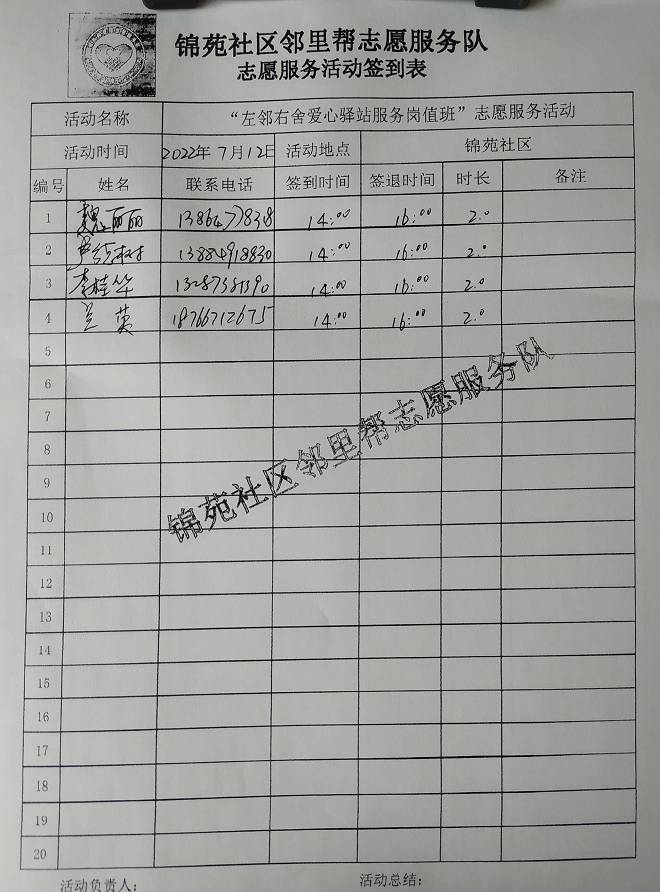 锦苑社区邻里帮志愿服务队
志愿服务活动签到表
活动名称 “左邻右舍爱心驿站服务岗值班”志愿服务活动
活动时间 2022年7月12日 活动地点 锦苑社区
编号 姓名 联系电话 签到时间 签退时间 时长 备注
1 魏丽丽 14:00 16:00 2.0
2 13884918830 14:00 16:00 2.0
3 李桂华 13287381390 14:00 16:00 2.0
4 兰英 18766712675 14:00 16:00 2.0
5
6
7
8
9
10
11
12
13
14
15
16
17
18
19
20
锦苑社区邻里帮志愿服务队
活动负责人: 活动总结: